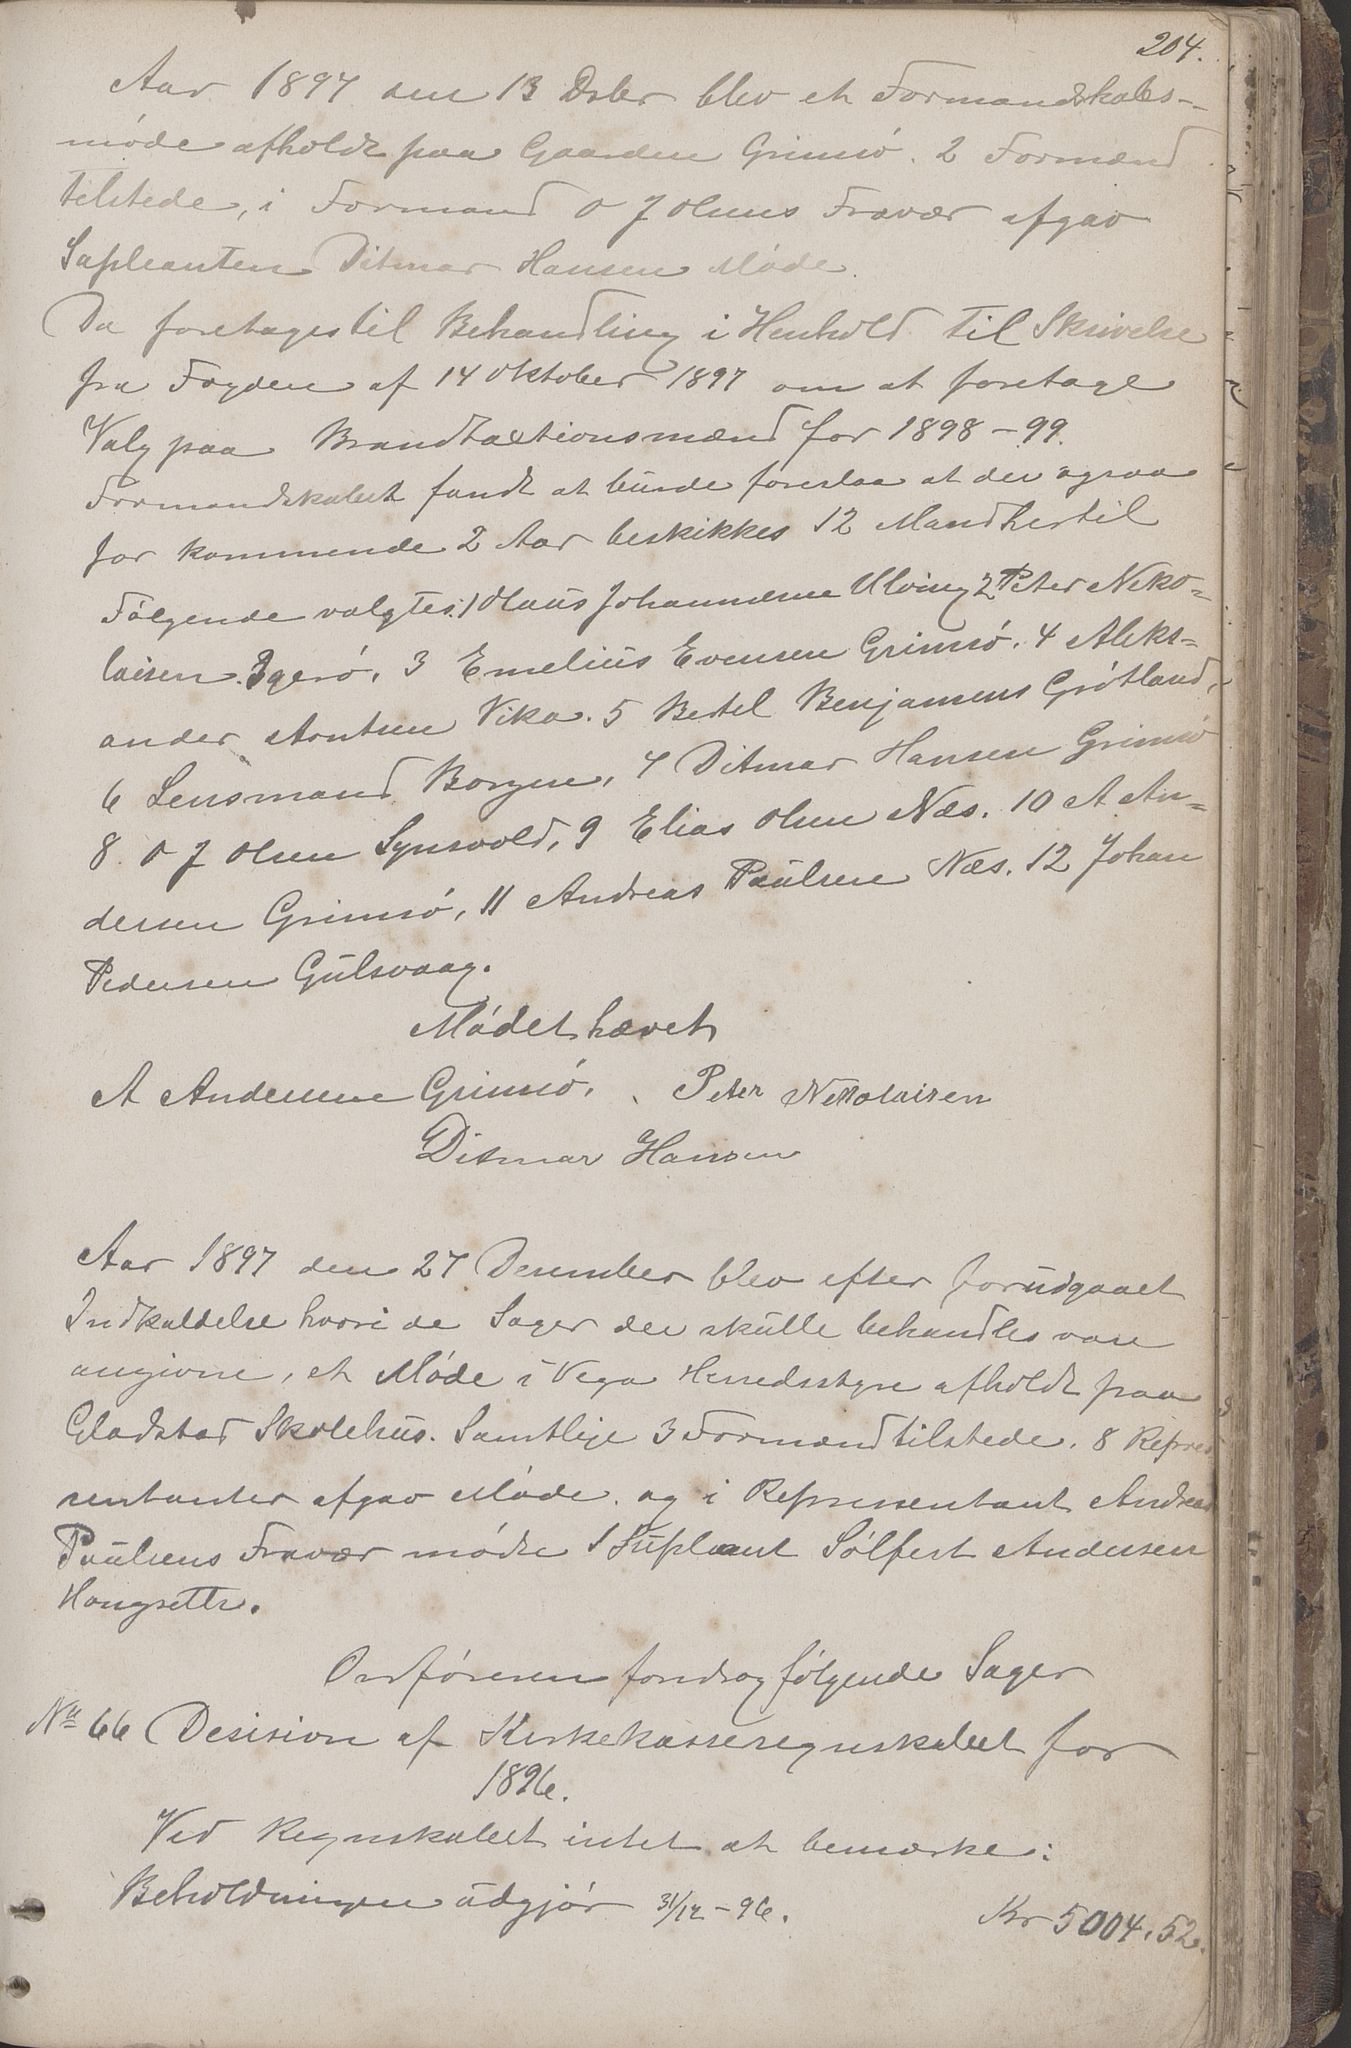 204.
Aar 1897 den 13 Dsbr blev et Formandskabs-
møde afholdt paa Gaarden Grimsø. 2 Formænd
tilstede, i Formand O J Olsens Fravær afgav
Supleanten Ditmar Hansen Møde.
Da foretages til Behandling i Henhold til Skrivelse
fra Fogden af 14 Oktober 1897 om at foretage
Valg paa Brandtaxtionsmænd for 1898-99.
Formandskabet fandt at burde foreslaa at der ogsaa
for kommende 2 Aar beskikkes 12 Mand hertil
Følgende valgtes: 1 Olaus Johannesen Ulving 2 Peter Neko=
laisen Igerø. 3 Emelius Evensen Grimsø. 4 Aleks=
ander Arntsen Vika. 5 Bertel Benjamens Grøtland,
6 Lensmand Borgen, 7 Ditmar Hansen Grimsø
8 O J Olsen Synsvold, 9 Elias Olsen Næs. 10 A An=
dersen Grimsø, 11 Andreas Paulsen Næs. 12 Johan
Pedersen Gulsvaag.
Mødet hævet
A Andersen Grimsø. Peter Nekolaisen
Ditmar Hansen
Aar 1897 den 27 Desember blev efter forudgaaet
Indkaldelse hvori de Sager der skulle behandles vare
angivne, et Møde i Vega Herredsstyre afholdt paa
Gladstad Skolehus. Samtlige 3 Formænd tilstede. 8 Repræ
sentanter afgav Møde. og i Representant Andreas
Paulsens Fravær mødte 1 Supleant Sølfest Andersen
Hongsette.
Ordføreren fordrog følgende Sager
No 66 Desision af Kirkekasseregnskabet for
1896.
Ved Regnskabet intet at bemærke:
Beholdningen udgjør 31/12-96. Kr 5004.52.